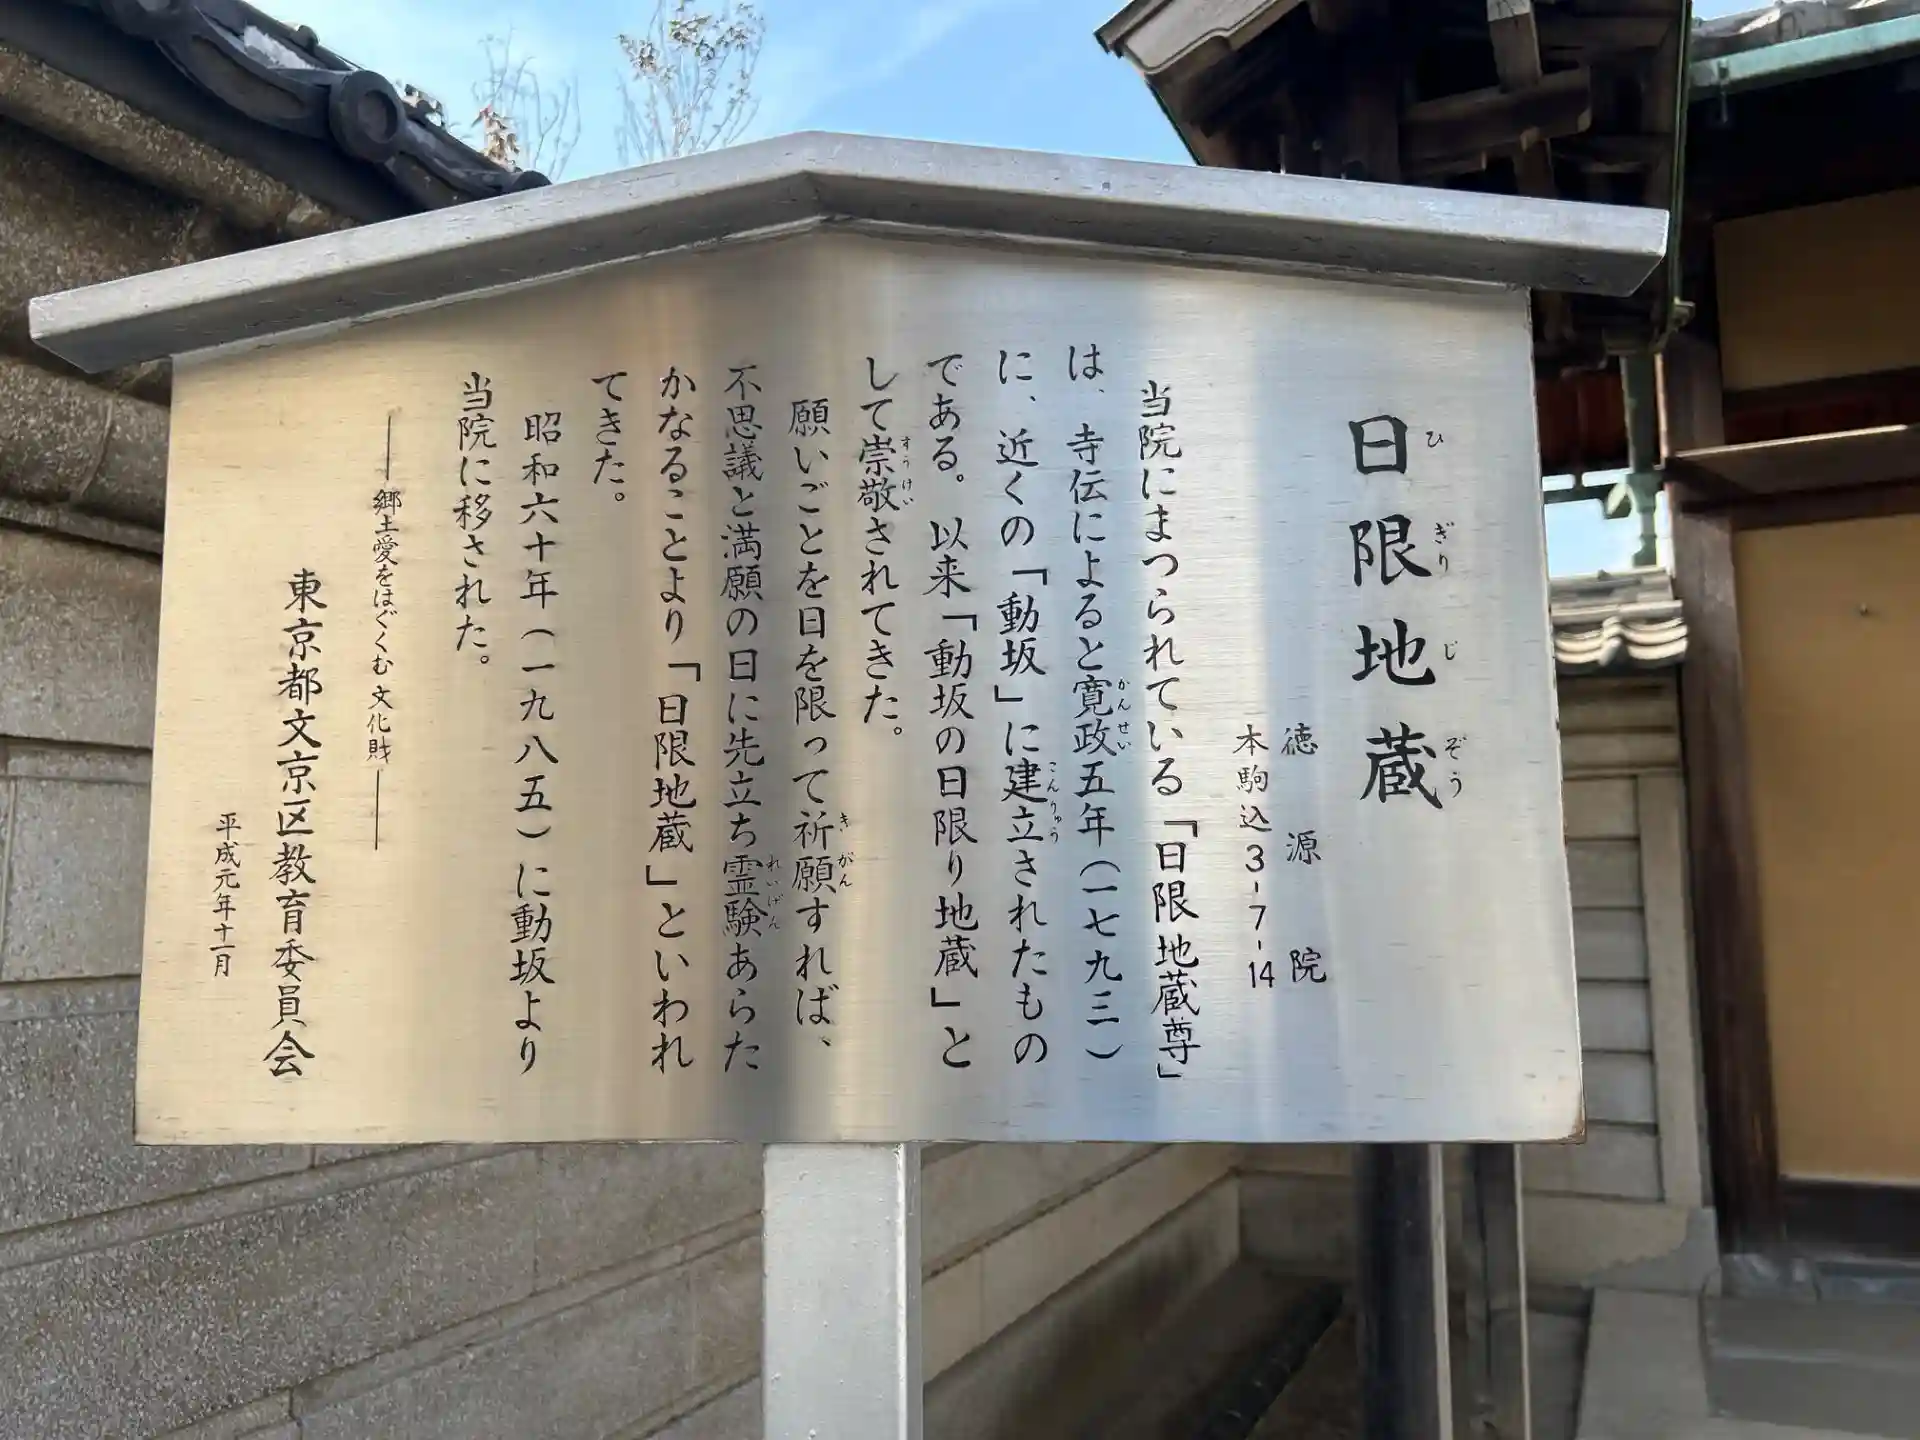 日限地蔵
ひぎりじぞう
徳源院
本駒込3-7-14
当院にまつられている「日限地蔵尊」
は、寺伝によると寛政五年(一七九三)
かんせい
に、近くの「動坂」に建立されたもの
こんりゅう
である。以来「動坂の日限り地蔵」と
して崇敬されてきた。
すうけい
願いごとを日を限って祈願すれば、
きがん
不思議と満願の日に先立ち霊験あらた
れいげん
かなることより「日限地蔵」といわれ
てきた。
昭和六十年(一九八五)に動坂より
当院に移された。
――郷土愛をはぐくむ文化財――
東京都文京区教育委員会
平成元年十一月